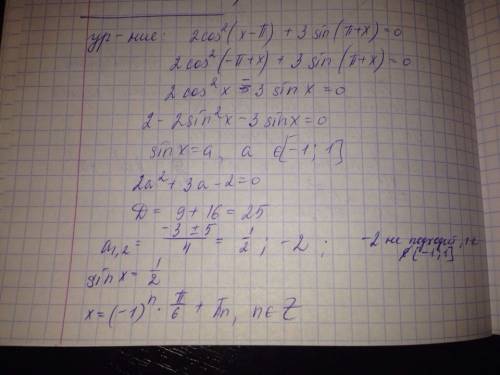 ур-ние: 2cos²(x-π) + 3 sin(π+x)=0
2cos²(-π+x) + 3 sin(π+x)=0
2cos²x - 3 sin x = 0
2 - 2sin²x - 3sinx = 0
sin x = a, a ∈[-1; 1]
2a² + 3a - 2 = 0
D = 9 + 16 = 25
a₁,₂ = (-3 ± 5)/4 = 1/2 ; -2 ; -2 не подходит, т.к
∉ [-1;1]
sin x = 1/2
x = (-1)ⁿ · π/6 + πn, n∈Z